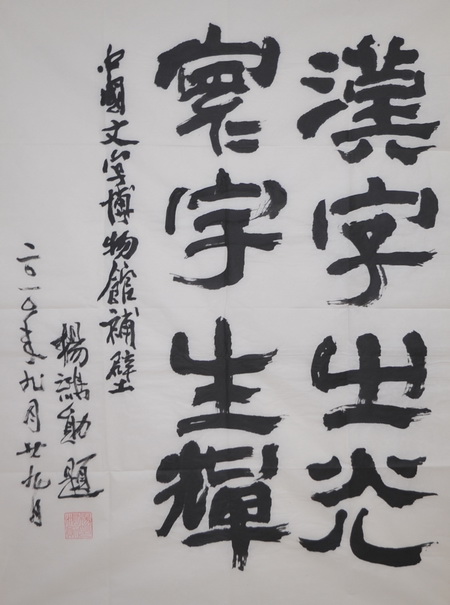 漢字之光
寰宇生輝
中國文字博物館補壁
楊鴻勛題
二〇一〇年九月廿九日